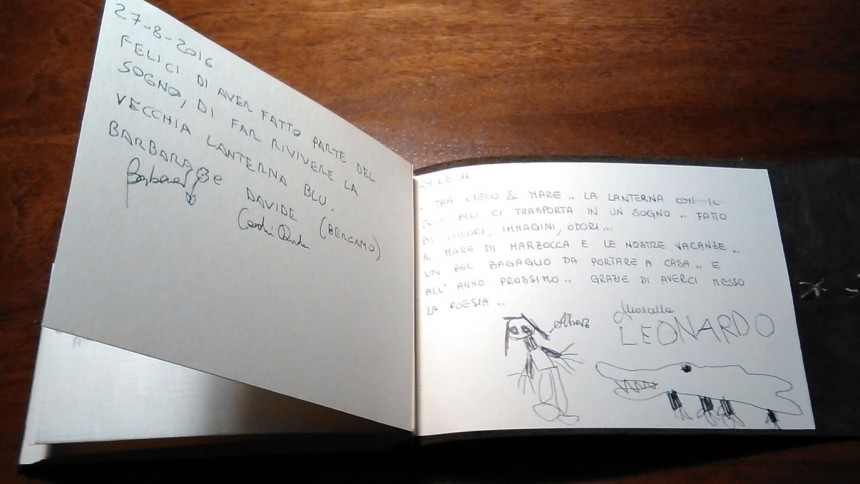 27-8-2016
FELICI DI AVER FATTO PARTE DEL
SOGNO, DI FAR RIVIVERE LA
VECCHIA LANTERNA BLU.
BARBARA e DAVIDE (BERGAMO)
TRA CIELO & MARE .. LA LANTERNA CON IL
BLU CI TRASPORTA IN UN SOGNO .. FATTO
DI COLORI, IMMAGINI, ODORI...
IL MARE DI MARZOCCA E LE NOSTRE VACANZE ..
UN BEL BAGAGLIO DA PORTARE A CASA .. E
ALL' ANNO PROSSIMO .. GRAZIE DI AVERCI MESSO
LA POESIA ..
LEONARDO